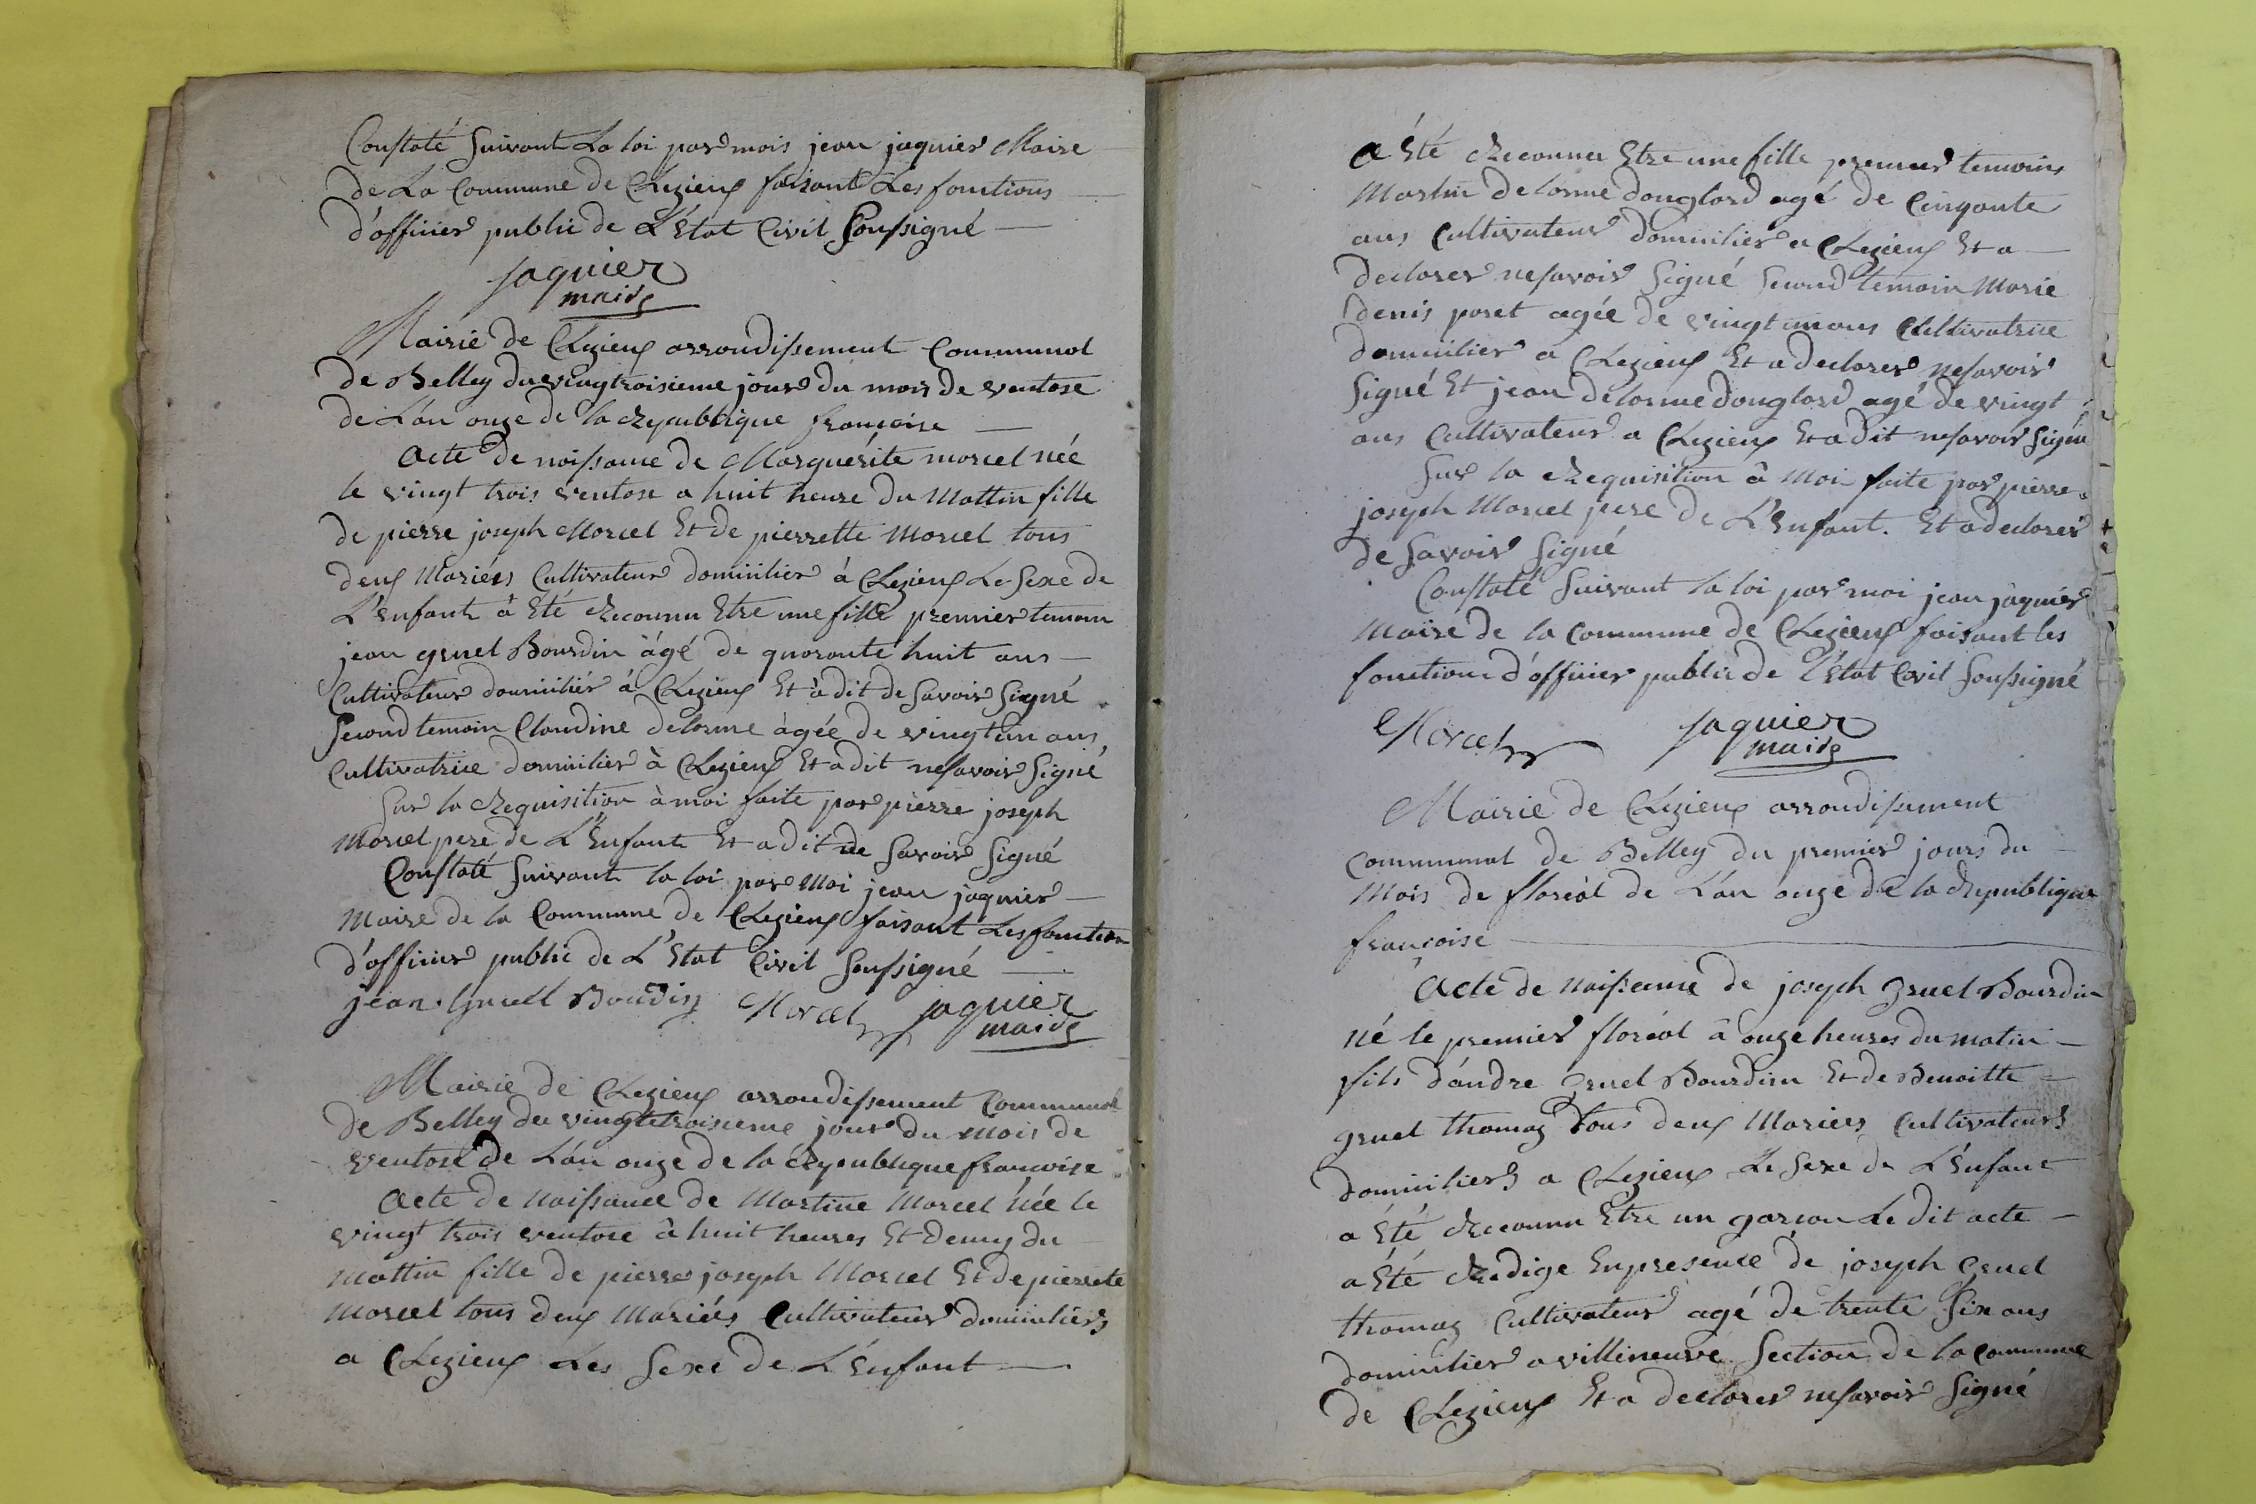 Constaté suivant La loi par mois jean jaquier Maire
de La Commune de Chezieux faisant Les fonctions
d'officier public de L'Etat Civil Soussigné
jaquier
maire
Mairie de Chezieux arrondissement Communal
de Belley du vingtroisieme jour du mois de ventose
de L'an onze de la republique francoise
Acte de naissance de Marguerite morcel née
le vingt trois ventose a huit heure du Mattin fille
de pierre joseph Morcel Et de pierrette Morcel tous
deux Mariées Cultivateur domicilier à Chezieux Le Sexe de
L'enfant à Eté Reconnu Etre une fille premier temoin
jean gruel Bourdin àgé de quarante huit ans
Cultivateur domicilier à Chezieux Et à dit de savoir Signé
Second temoin Claudine delorme àgée de vingt un ans
Cultivatrice domicilier à Chezieux Et a dit ne savoir Signé
Sur la Requisition à moi faite par pierre joseph
Morcel pere de L'Enfant Et a dit de Savoir Signé
Constaté Suivant la loi par Moi jean jaquier
Maire de la Commune de Chezieux faisant Les fonction
d'officier public de L'Etat Civil Soussigné
jean Gruell Boudin Morcel jaquier
maire
Mairie de Chezieux arrondissement Communal
de Belley du vingtetroisieme jour du Mois de
ventose de L'an onze de la Republique francoise
Acte de Naissance de Martine Morcel Née le
vingt trois ventose à huit heures Et demy du
Mattin fille de pierre joseph Morcel Et de pierrette
Morcel tous deux Mariées Cultivateur domiciliers
a Chezieux Les Sexe de L'Enfant
a Eté Reconnu Etre une fille premier temoins
Martin delorme donglard agé de Cinqante
ans Cultivateur domicilier a Chezieux Et a
declarer ne savoir Signé Second temoin Marie
denis poret agée de vingt un ans Cultivatrice
domicilier a Chezieux Et a declarer ne savoir
Signé Et jean delorme donglard agé de vingt
ans Cultivateur a Chezieux Et a dit ne savoir Signé
Sur la Requisition à Moi faite par pierre
joseph Morcel pere de L'Enfant. Et a declarer
de Savoir Signé
Constaté Suivant la loi par moi jean jaquier
Maire de la Commune de Chezieux faisant les
fonction d'officier public de l'Etat Civil Soussigné
Morcel jaquier
maire
Mairie de Chezieux arrondissement
Communal de Belley du premier jours du
Mois de floréal de L'an onze de la Republique
francoise
Acte de Naissance de joseph gruel Bourdin
né le premier floréal à onze heures du matin
fils d'andre gruel Bourdin Et de Benoitte
gruel thomaz tous deux Mariers Cultivateurs
domiciliers a Chezieux Le Sexe de L'Enfant
a Eté Reconnu Etre un garcon Le dit acte
a Eté Redige En presence de joseph Gruel
thomaz Cultivateur agé de trente Six ans
domicilier a villineuve Section de la commune
de Chezieux Et a declarer ne savoir Signé